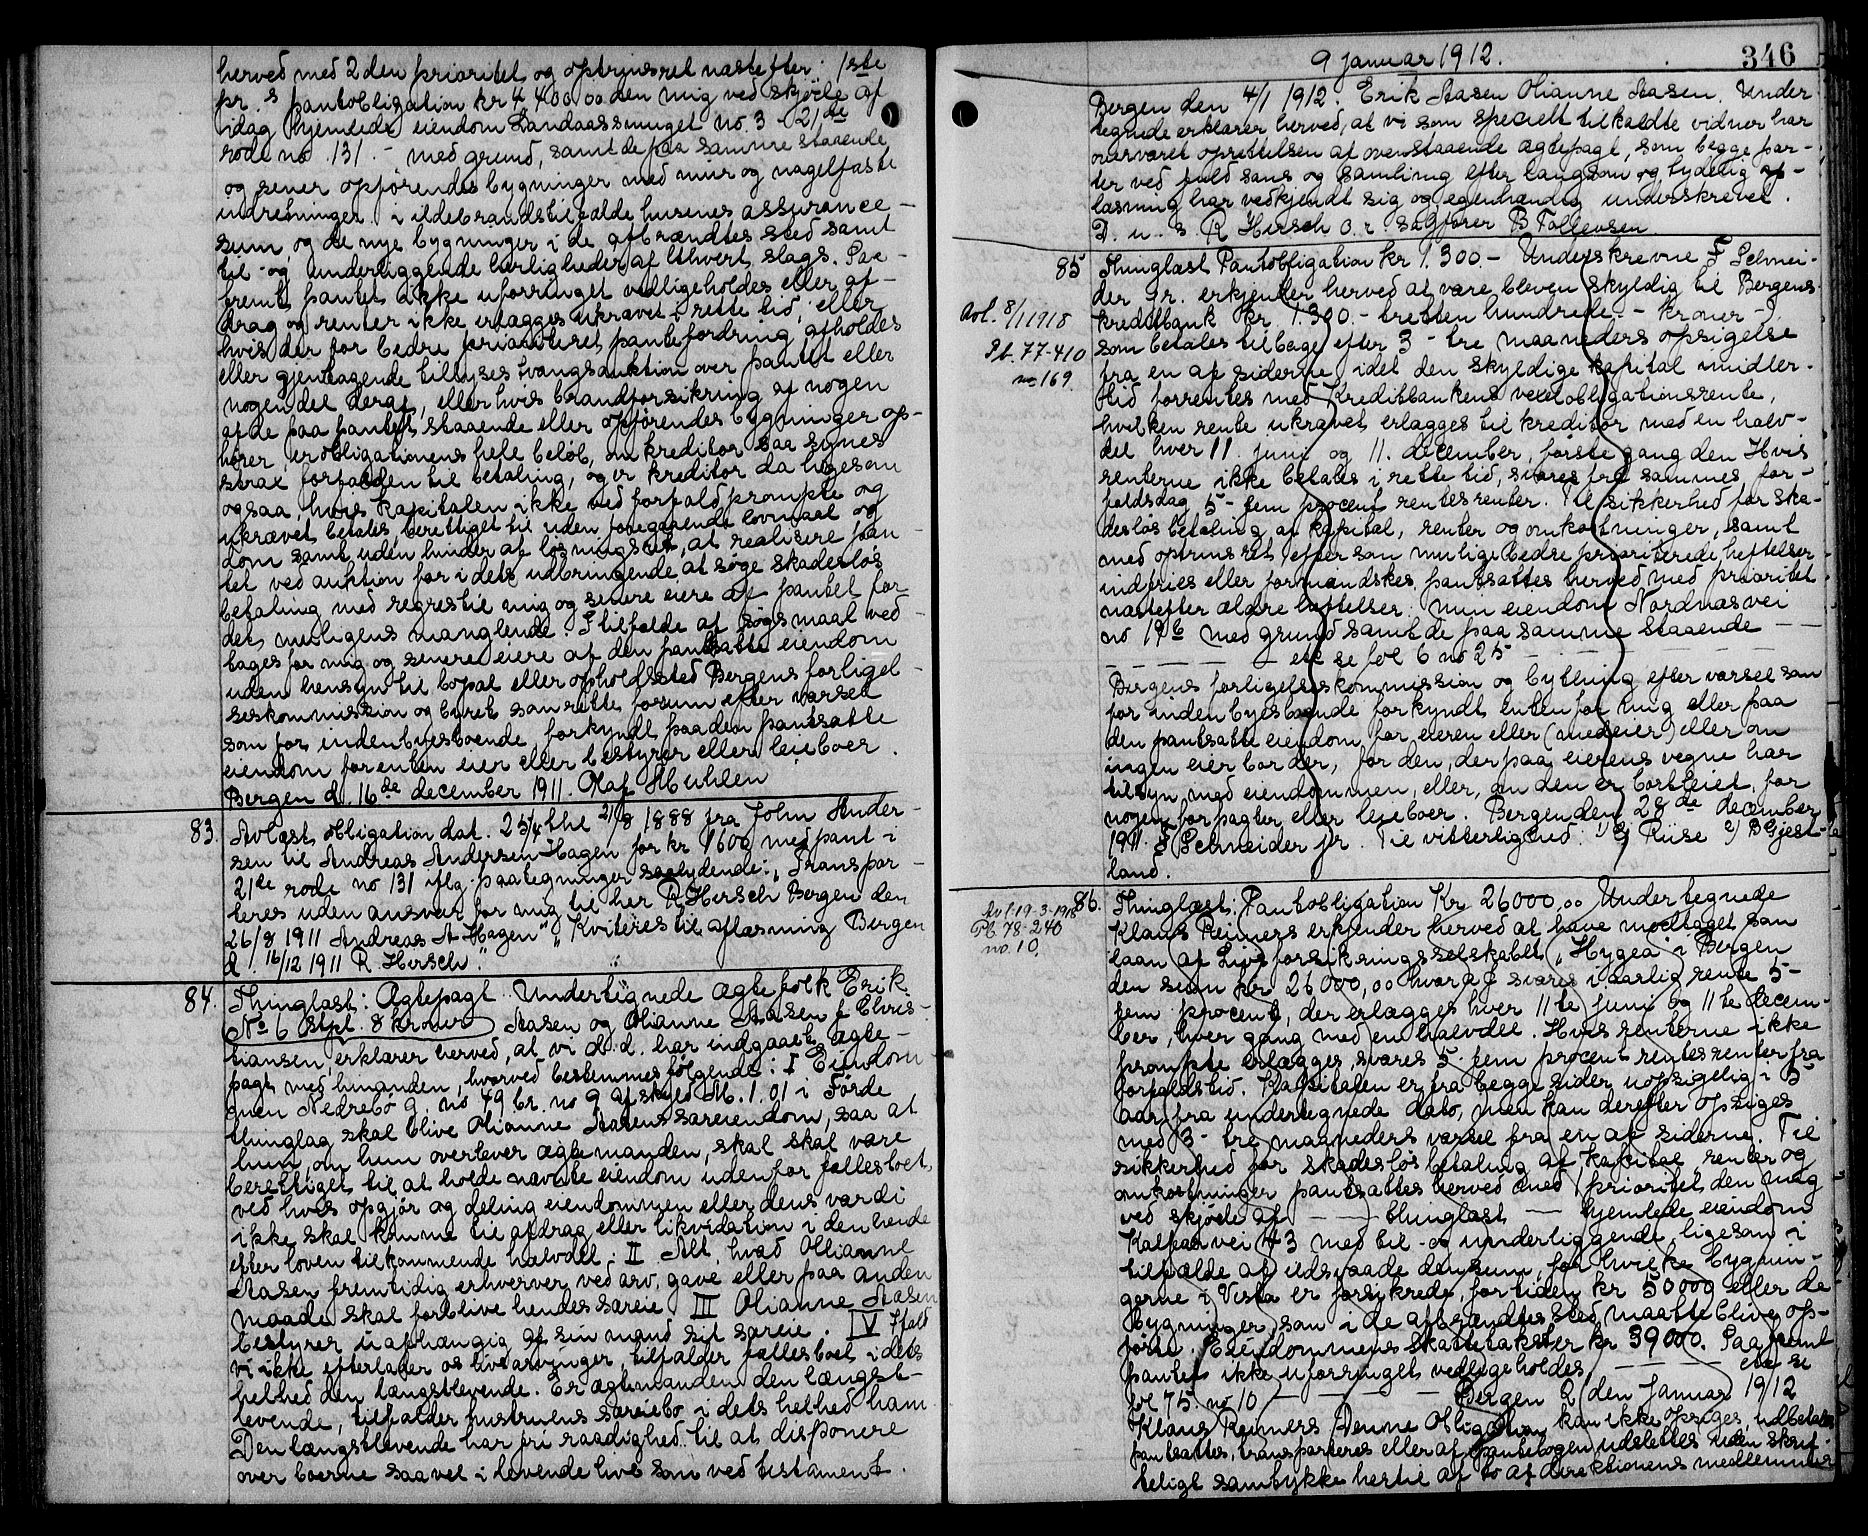 herved med 2den prioritet og optrinsret næstefter 1ste
pr. s pantobligation kr 4400.00 den mig ved skjøde af
idag hjemlede eiendom Landaassmuget no. 3 - 21de
rode no. 131. - med grund, samt de paa samme staaende
og sener opførendes bygninger med mur og nagelfaste
indretninger i ildebrandstilfælde husenes assurance-
sum, og de nye bygninger i de afbrændtes sted samt
til- og underliggende herligheder af ethvert slags. Saa-
fremt pantet ikke uforringet vedligeholdes eller af-
drag og renter ikke erlægges ukrævet i rette tid, eller
hvis der for bedre prioriteret pantefordring afholdes
eller gjentagende tillyses tvangsauktion over pantet eller
nogen del deraf, eller hvis brandforsikring af nogen
af de paa pantet staaende eller opførendes bygninger op-
hører, er obligationens hele beløb, om kreditor saa synes
strax forfalden til betaling, og er kreditor da ligesom
ogsaa, hvis kapitalen ikke ved forfald prompte og
ukrævet betales, berettiget til uden foregaaende lovmaal og
dom samt uden hinder af løsningsret, at realisere pan-
tet ved auktion for i dets udbringende at søge skadesløs
betaling med regres til mig og senere eiere af pantet for
det muligens manglende. I tilfælde af søgsmaal ved-
tages for mig og senere eiere af den pantsatte eiendom
uden hensyn til bopæl eller opholdssted Bergens forligel-
seskommission og byret som rette forum efter varsel
som for indenbyesboende forkyndt paa den pantsatte
eiendom for enten eier eller bestyrer eller leieboer.
Bergen d. 16de december 1911. Olaf Huhlen
83. Avlæst obligation dat. 25/4 thl 21/8 1888 fra John Ander-
sen til Andreas Andersen Hagen for kr 1600 med pant i
21de rode no 131 iflg. paategninger saalydende: "Transpor-
teres uden ansvar for mig til her R. Hirsch Bergen den
26/8 1911 Andreas A Hagen" "Kvitteres til aflæsning Bergen
d. 16/12 1911 R. Hirsch."
84. Thinglæst: Ægtepagt. Undertegnede ægtefolk Erik
No 6 Stpl. 8 kroner Aasen og Olianne Aasen f. Chris-
tiansen, erklærer herved, at vi d.d. har indgaaet ægte-
pagt med hinanden, hvorved bestemmes følgende: I Eiendom
men Nedrebø g. no 49 br. no 9 af skyld M. 1.01 i Førde
thinglag skal blive Olianne Aasens særeiendom, saa at
hun, om hun overlever ægtemanden, skal skal være
berettiget til at holde nævnte eiendom udenfor fællesboet,
ved hvis opgjør og deling eiendommen eller dens værdi
ikke skal komme til afdrag eller likvidation i den hende
efter loven tilkommende halvdel. II Alt, hvad Olianne
Aasen fremtidig erhverver ved arv, gave eller paa anden
maade skal forblive hendes særeie. III Olianne Aasen
bestyrer uafhængig af sin mand sit særeie. IV Ifald
vi ikke efterlader os livsarvinger, tilfalder fællesboet i dets
helhed den længstlevende. Er ægtemanden den længst-
levende, tilfalder hustruens særeiebo i dets helhed ham.
Den længstlevende har fri raadighed til at disponere
over boerne saavel i levende live som ved testament.
9 januar 1912.
346
Bergen den 4/1 1912. Erik Aasen Olianne Aasen. Under-
tegnede erklærer herved, at vi som specielt tilkaldte vidner har
overværet oprettelsen af ovenstaaende ægtepagt, som begge par-
ter ved fuld sans og samling efter langsom og tydelig op-
læsning har vedkjendt sig og egenhændig underskrevet.
D. u. s R Hirsch o. r. sagfører B Tollevsen
85 Thinglæst Pantobligation kr 1.300.- Underskrevne F Schnei-
der jr. erkjender herved at være bleven skyldig til Bergens
Avl. 8/1 1918
kreditbank kr 1.300.- tretten hundrede - kroner -
Pb. 77-410
no 169
som betales tilbage efter 3 - tre maaneders opsigelse
fra en af siderne idet den skyldige kapital imidler-
tid forrentes med Kreditbankens vexelobligationsrente,
hvilken rente ukrævet erlægges til kreditor med en halv-
del hver 11. juni og 11. december, første gang den Hvis
renterne ikke betales i rette tid, svares fra sammes for-
faldsdag 5 - fem procent rentesrenter. Til sikkerhed for ska-
desløs betaling af kapital, renter og omkostninger, samt
med optrinsret eftersom mulige bedre prioriterede heftelser
indfries eller formindskes, pantsættes herved med prioritet
næstefter ældre heftelser min eiendom Nordnæsvei
no 19b med grund samt de paa samme staaende - -
- - - - etc se fol 6 no 25 - - - -
Bergens forligelseskommission og bything efter varsel som
for indenbyesboende forkyndt enten for mig eller paa
den pantsatte eiendom for eieren eller (medeier) eller om
ingen eier bor der, for den, der paa eierens vegne har
tilsyn med eiendommen, eller, om den er bortleiet, for
nogen forpagter eller leieboer. Bergen den 28de december
1911. F Schneider jr. Til vitterlighed: 1) Riise 2) B Gjest-
land.
86. Thinglæst: Pantobligation Kr. 26000,00 Undertegnede
Avl. 19-3-1918
Pb. 78-240
no. 10.
Klaus Reimers erkjender herved at have modtaget som
laan af Livsforsikringsselskabet "Hygea" i Bergen
den sum kr. 26000,00 hvoraf svares i aarlig rente 5 -
fem procent, der erlægges hver 11te juni og 11te decem-
ber, hver gang med en halvdel. Hvis renterne ikke
prompte erlægges, svares 5 - fem procent rentesrenter fra
forfaldstid. Kapitalen er fra begge sider uopsigelig i 5
aar fra undertegnede dato, men kan derefter opsiges
med 3 - tre maaneders varsel fra en af siderne. Til
sikkerhed for skadesløs betaling af kapital, renter og
omkostninger pantsættes herved med 1 prioritet den mig
ved skjøde af - - thinglæst - - hjemlede eiendom
Kalfarvei 43 med til- og underliggende, ligesom i
tilfælde af ildsvaade den sum, for hvilke bygnin-
gerne i Vesta er forsikrede, for tiden kr 50000 eller de
bygninger, som i de afbrændtes sted maatte blive op-
førte. Eiendommens skattetakst er kr 39000. Saafremt
pantet ikke uforringet vedligeholdes - - - etc se
fol 75. no 10 - - - - Bergen 2 den Januar 1912
Klaus Reimers Denne Obligation kan ikke opsiges, udbetales
pantsættes, transporteres eller af pantebogen udslettes uden skrift-
teligt samtykke hertil af to af direktionens medlemmer